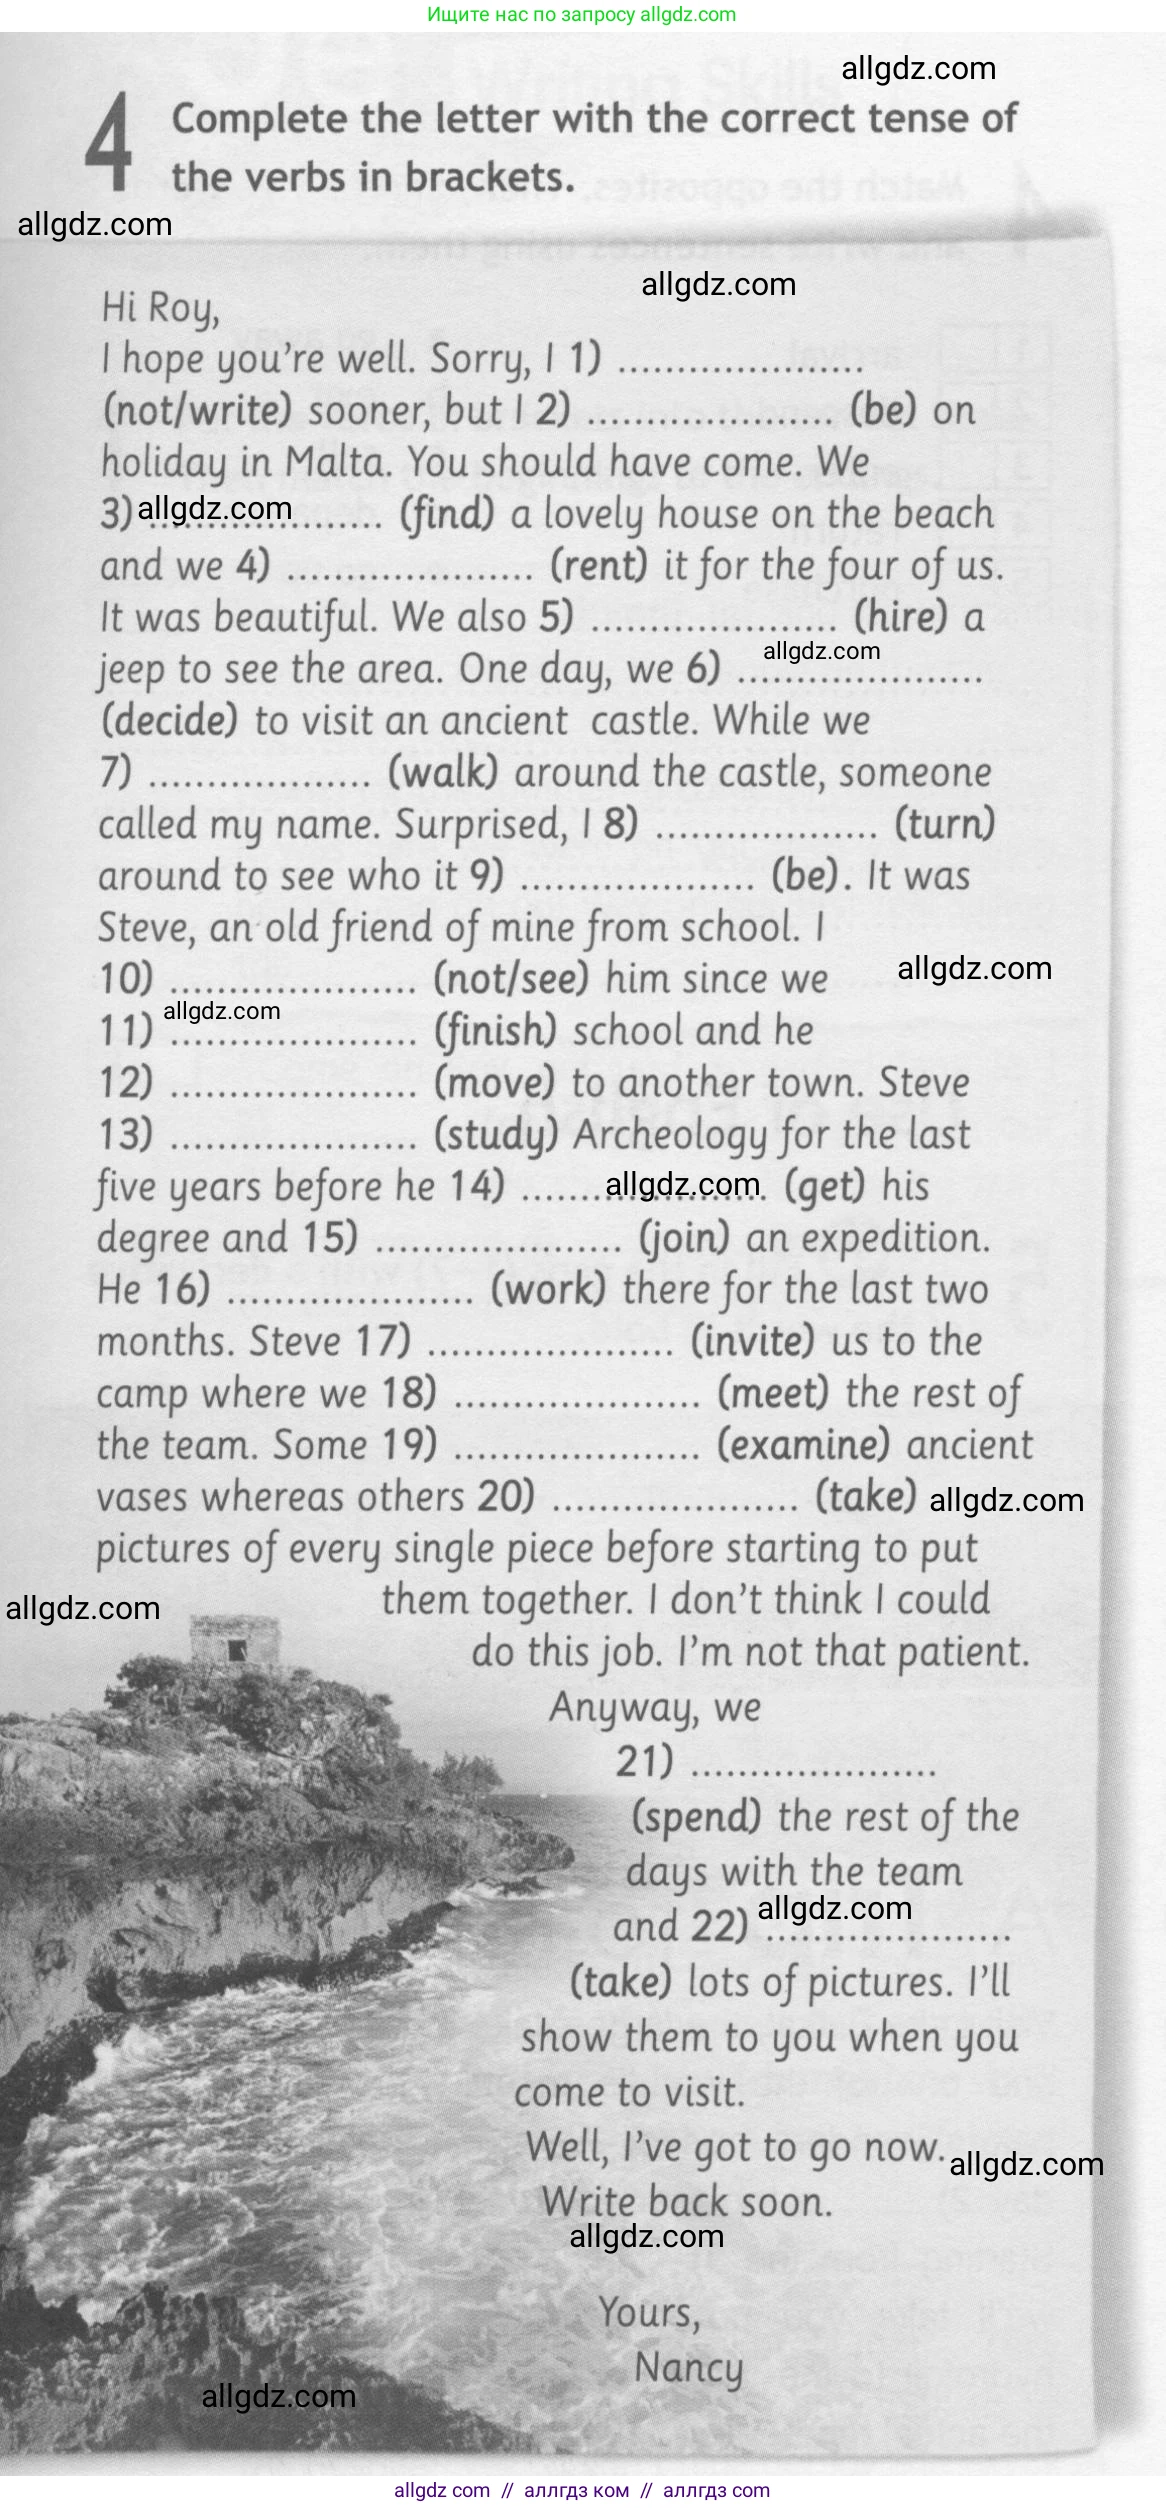 Ищите нас по запросу allgdz.com
allgdz.com
4 Complete the letter with the correct tense of
the verbs in brackets.
allgdz.com
allgdz.com
Hi Roy,
I hope you're well. Sorry, I 1) .....................
(not/write) sooner, but I 2) ..................... (be) on
holiday in Malta. You should have come. We
3) allgdz.com ..................... (find) a lovely house on the beach
and we 4) ..................... (rent) it for the four of us.
It was beautiful. We also 5) ..................... (hire) a
allgdz.com
jeep to see the area. One day, we 6) .....................
(decide) to visit an ancient castle. While we
7) ................... (walk) around the castle, someone
called my name. Surprised, I 8) ................... (turn)
around to see who it 9) .................... (be). It was
Steve, an old friend of mine from school. I
10) ..................... (not/see) him since we allgdz.com
allgdz.com
11) ..................... (finish) school and he
12) ..................... (move) to another town. Steve
13) ..................... (study) Archeology for the last
five years before he 14) ..................... allgdz.com (get) his
degree and 15) ..................... (join) an expedition.
He 16) ..................... (work) there for the last two
months. Steve 17) ..................... (invite) us to the
camp where we 18) ..................... (meet) the rest of
the team. Some 19) ..................... (examine) ancient
vases whereas others 20) ..................... (take) allgdz.com
pictures of every single piece before starting to put
allgdz.com them together. I don't think I could
do this job. I'm not that patient.
Anyway, we
21) .....................
(spend) the rest of the
days with the team
allgdz.com
and 22) .....................
(take) lots of pictures. I'll
show them to you when you
come to visit.
Well, I've got to go now. allgdz.com
Write back soon.
allgdz.com
Yours,
Nancy
allgdz.com
allgdz com // аллгдз ком // аллгдз com